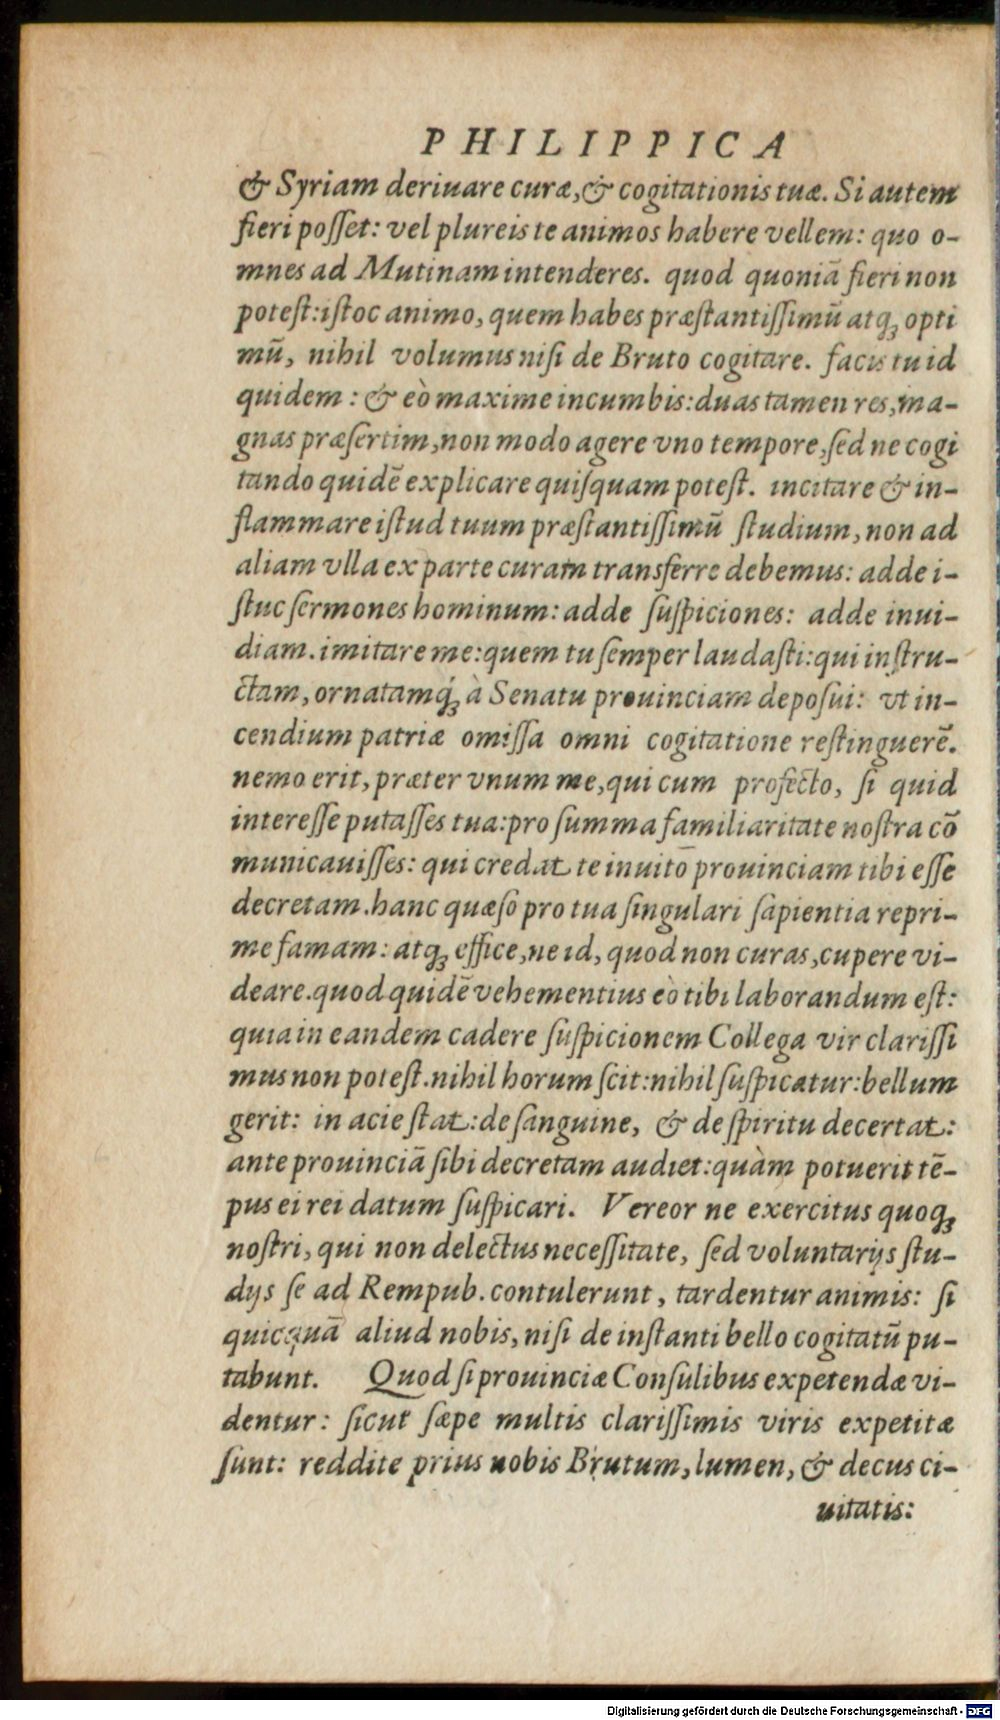 PHILIPPICA
& Syriam deriuare curæ, & cogitationis tuæ. Si autem
fieri poſſet: vel plureis te animos habere vellem: quo o-
mnes ad Mutinam intenderes. quod quoniã fieri non
poteſt: iſtoc animo, quem habes præſtantiſſimũ atq; opti
mũ, nihil volumus niſi de Bruto cogitare. facis tu id
quidem: & eò maxime incumbis: duas tamen res, ma-
gnas præſertim, non modo agere vno tempore, ſed ne cogi
tando quidẽ explicare quiſquam poteſt. incitare & in-
flammare iſtud tuum præſtantiſſimũ ſtudium, non ad
aliam vlla ex parte curam transferre debemus: adde i-
ſtuc ſermones hominum: adde ſuſpiciones: adde inui-
diam. imitare me: quem tu ſemper laudaſti: qui inſtru-
ctam, ornatamq́; à Senatu prouinciam depoſui: vt in-
cendium patriæ omiſſa omni cogitatione reſtinguerẽ.
nemo erit, præter vnum me, qui cum profecto, ſi quid
intereſſe putaſſes tua: pro ſumma familiaritate noſtra cõ
municauiſſes: qui credat te inuito prouinciam tibi eſſe
decretam. hanc quæſo pro tua ſingulari ſapientia repri-
me famam: atq; effice, ne id, quod non curas, cupere vi-
deare. quod quidẽ vehementius eò tibi laborandum eſt:
quia in eandem cadere ſuſpicionem Collega vir clariſſi
mus non poteſt. nihil horum ſcit: nihil ſuſpicatur: bellum
gerit: in acie ſtat: de ſanguine, & de ſpiritu decertat:
ante prouinciã ſibi decretam audiet: quàm potuerit tẽ-
pus ei rei datum ſuſpicari. Vereor ne exercitus quoq;
noſtri, qui non delectus neceſſitate, ſed voluntarijs ſtu-
dijs ſe ad Rempub. contulerunt, tardentur animis: ſi
quicquã aliud nobis, niſi de inſtanti bello cogitatũ pu-
tabunt. Quod ſi prouinciæ Conſulibus expetendæ vi-
dentur: ſicut ſæpe multis clariſſimis viris expetitæ
ſunt: reddite prius nobis Brutum, lumen, & decus ci-
uitatis:
Digitalisierung gefördert durch die Deutsche Forschungsgemeinschaft - DFG